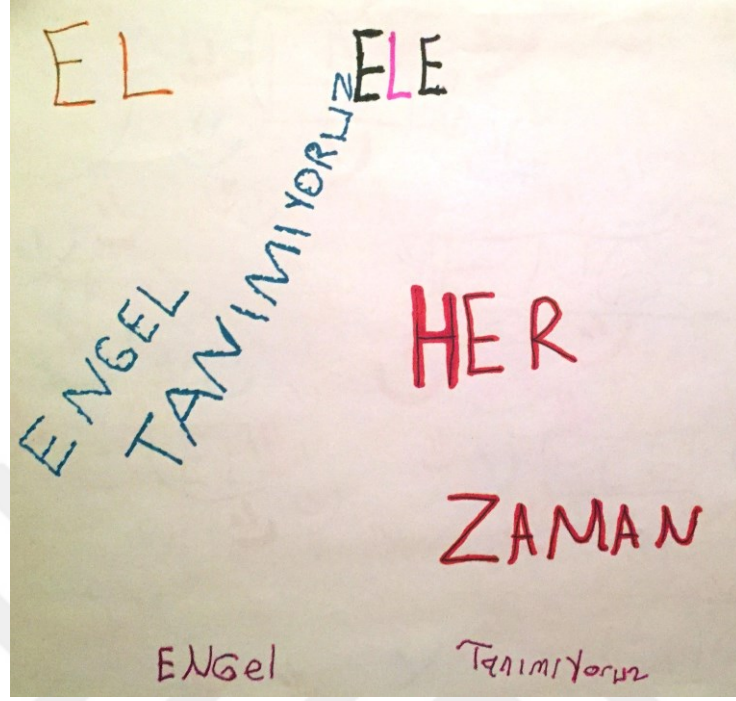 EL ELE
ENGEL
TANIMIYORUZ
HER
ZAMAN
ENGel
TanımıYoruz